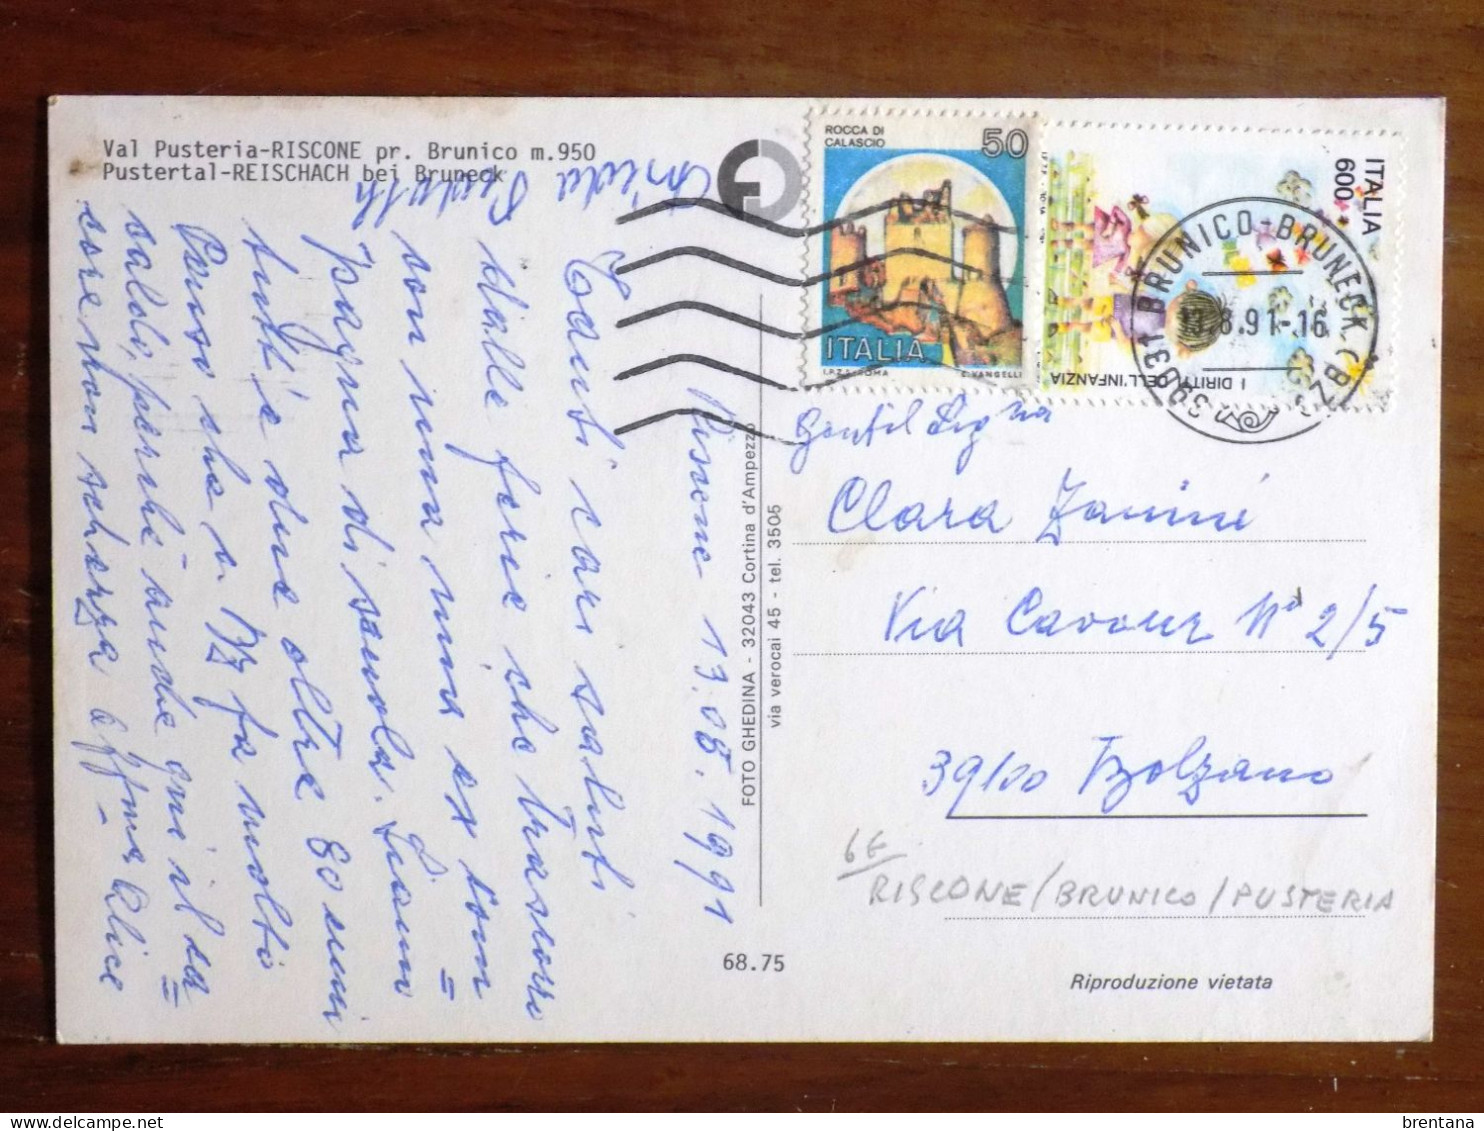 Val Pusteria-RISCONE pr. Brunico m.950
Pustertal-REISCHACH bei Bruneck
ROCCA DI
CALASCIO
50
ITALIA
I.P.Z.S. ROMA E. VANGELLI
ITALIA
600
I DIRITTI DELL'INFANZIA
39031 BRUNICO-BRUNECK /BZ
13.8.91-16
Riscone 13.08.1991
Tanti cari saluti
dalle ferie che trascorro
con una mia ex com=
pagna di scuola. Siamo
tutt'e due oltre 80 enni
Penso che a Bz fa molto
caldo, perché anche qui il ca=
lore non scherza. Aff.me Alice
FOTO GHEDINA - 32043 Cortina d'Ampezzo
via verocai 45 - tel. 3505
Gentil Sig.na
Clara Zanini
Via Cavour N° 2/5
39100 Bolzano
6€
RISCONE/BRUNICO/PUSTERIA
68.75
Riproduzione vietata
brentana